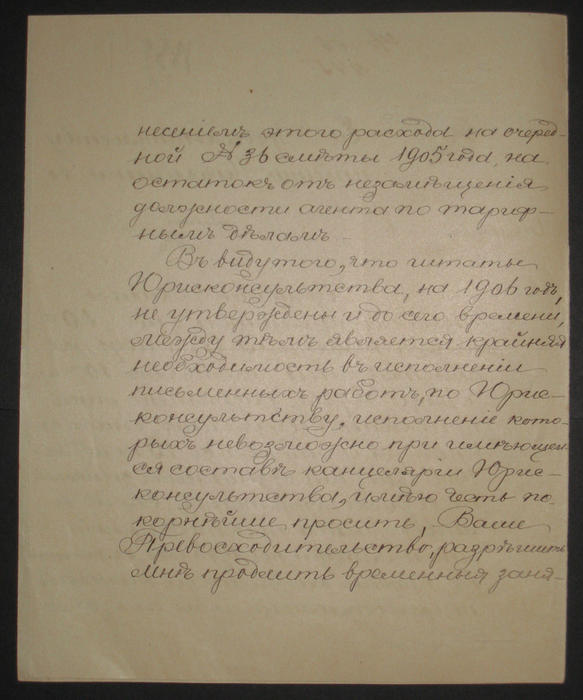 несеніемъ этого расхода на очеред-
ной № 36 смѣты 1905 года, на
остатокъ отъ незамѣщенія
должности агента по тариф-
нымъ дѣламъ.
Въ виду того, что штаты
Юрисконсультства, на 1906 годъ,
не утверждены и до сего времени,
между тѣмъ является крайняя
необходимость въ исполненіи
письменныхъ работъ, по Юрис-
консультству, исполненіе кото-
рыхъ невозможно при имѣющем-
ся составѣ канцеляріи Юрис-
консультства, имѣю честь по-
корнѣйше просить, Ваше
Превосходительство, разрѣшить
мнѣ продлить временныя заня-